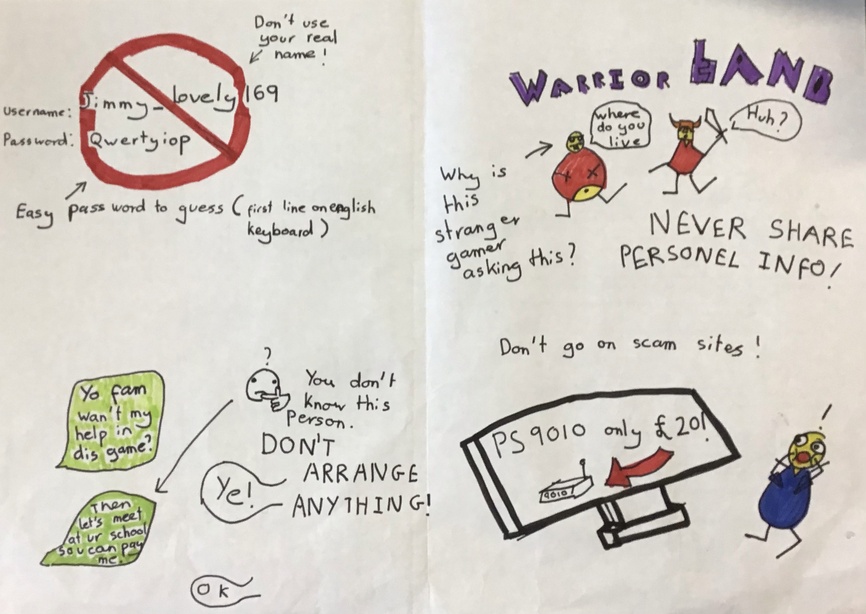 Don't use
your real
name!
Username: Jimmy_lovely169
Password: Qwertyiop
Easy pass word to guess (first line on english
keyboard)
WARRIOR LAND
where
do you
live
Huh?
Why is
this
stranger
gamer
asking this?
NEVER SHARE
PERSONEL INFO!
?
Yo fam
wan't my
help in
dis game?
You don't
know this
person.
DON'T
ARRANGE
ANYTHING!
Ye!
Then
let's meet
at ur school
so u can pay
me.
Ok
Don't go on scam sites!
PS9010 only £20!
9010
!